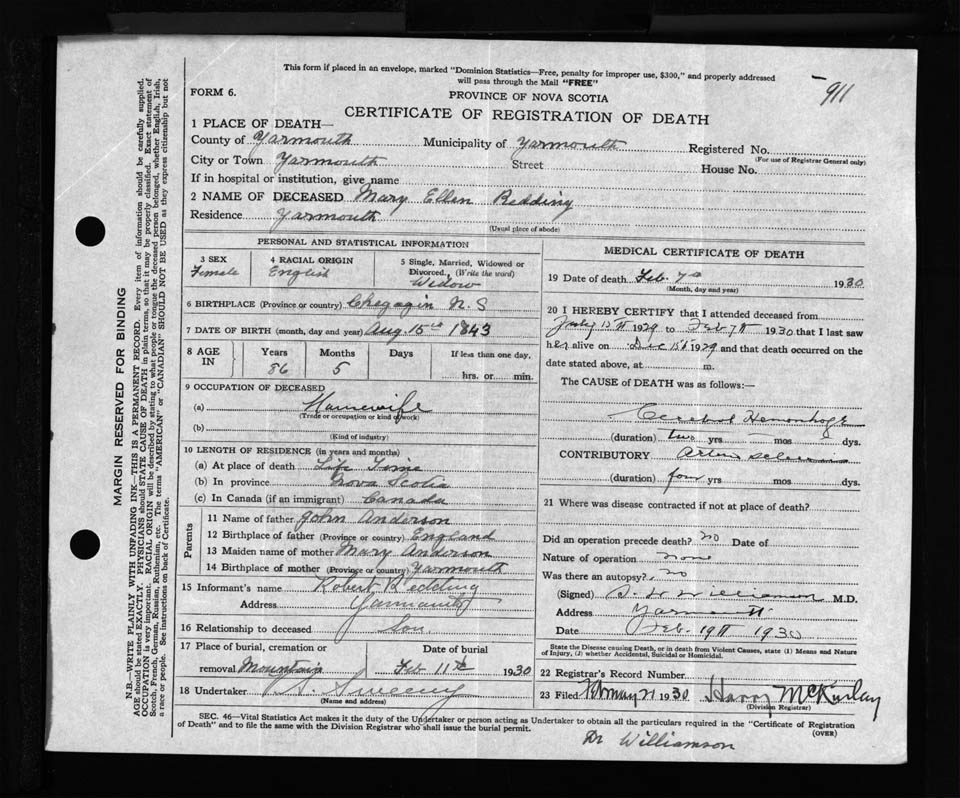 This form if placed in an envelope, marked "Dominion Statistics—Free, penalty for improper use, $300," and properly addressed
will pass through the Mail "FREE"
911
FORM 6.
PROVINCE OF NOVA SCOTIA
CERTIFICATE OF REGISTRATION OF DEATH
1 PLACE OF DEATH—
County of Yarmouth Municipality of Yarmouth Registered No.
(For use of Registrar General only)
City or Town Yarmouth Street House No.
If in hospital or institution, give name
2 NAME OF DECEASED Mary Ellen Redding
Residence Yarmouth
(Usual place of abode)
PERSONAL AND STATISTICAL INFORMATION
3 SEX 4 RACIAL ORIGIN 5 Single, Married, Widowed or
Divorced. (Write the word)
Female English Widow
6 BIRTHPLACE (Province or country) Chegoggin N.S
7 DATE OF BIRTH (month, day and year) Aug 15th 1843
8 AGE IN Years Months Days If less than one day,
86 5 hrs. or min.
9 OCCUPATION OF DECEASED
(a) Housewife
(Trade or occupation or kind of work)
(b)
(Kind of industry)
10 LENGTH OF RESIDENCE (in years and months)
(a) At place of death Life Time
(b) In province Nova Scotia
(c) In Canada (if an immigrant) Canada
Parents
11 Name of father John Anderson
12 Birthplace of father (Province or country) England
13 Maiden name of mother Mary Anderson
14 Birthplace of mother (Province or country) Yarmouth
15 Informant's name Robert Redding
Address Yarmouth
16 Relationship to deceased Son
17 Place of burial, cremation or Date of burial
removal Mountain Feb 11th 1930
18 Undertaker Sweeny
(Name and address)
MEDICAL CERTIFICATE OF DEATH
19 Date of death Feb. 7th 1930
(Month, day and year)
20 I HEREBY CERTIFY that I attended deceased from
July 13th 1929 to Feb 7th 1930 that I last saw
her alive on Dec 15th 1929 and that death occurred on the
date stated above, at m.
The CAUSE of DEATH was as follows:—
Cerebral Hemorrhage
(duration) two yrs mos dys.
CONTRIBUTORY Arterio sclerosis
(duration) four yrs. mos. dys.
21 Where was disease contracted if not at place of death?
Did an operation precede death? no Date of
Nature of operation none
Was there an autopsy? no
(Signed) Williamson M.D.
Address Yarmouth
Date Feb. 19th 1930
State the Disease causing Death, or in death from Violent Causes, state (1) Means and Nature
of Injury, (2) whether Accidental, Suicidal or Homicidal.
22 Registrar's Record Number
23 Filed 1930 Harry McKinlay
(Division Registrar)
SEC. 46—Vital Statistics Act makes it the duty of the Undertaker or person acting as Undertaker to obtain all the particulars required in the "Certificate of Registration
of Death" and to file the same with the Division Registrar who shall issue the burial permit.
(OVER)
Dr Williamson
MARGIN RESERVED FOR BINDING
N.B.—WRITE PLAINLY WITH UNFADING INK—THIS IS A PERMANENT RECORD. Every item of information should be carefully supplied.
AGE should be stated EXACTLY. PHYSICIANS should STATE CAUSE OF DEATH in plain terms, so that it may be properly classified. Exact statement of
OCCUPATION is very important. RACIAL ORIGIN will be described by stating to what people or tongue the deceased person belonged, whether English, Irish,
Scotch, French, German, Russian, Ruthenian, etc. The terms "AMERICAN" or "CANADIAN" SHOULD NOT BE USED as they express citizenship but not
a race or people. See instructions on back of Certificate.